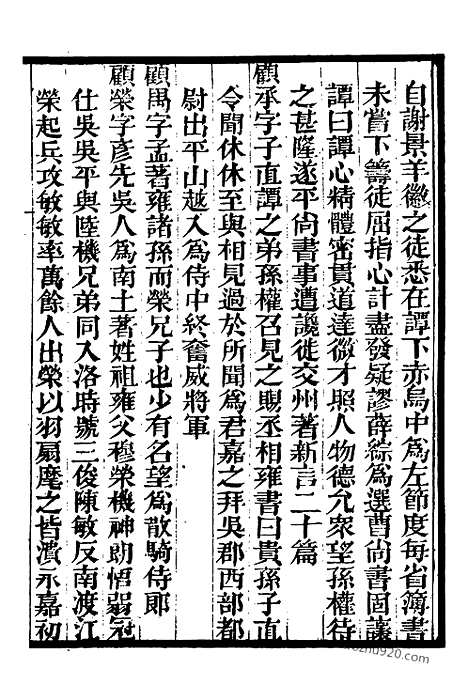 自謝景羊徽之徒悉在譚下赤烏中爲左節度每省簿書
未嘗下籌徒屈指心計盡發疑謬薛綜爲選曹尚書固讓
譚曰譚心精體密貫道達微才照人物德允衆望孫權待
之甚隆遂平尚書事遭讒徙交州著新言二十篇
顧承字子直譚之弟孫權召見之賜丞相雍書曰貴孫子直
令聞休休至與相見過於所聞爲君嘉之拜吳郡西部都
尉出平山越入爲侍中終奮威將軍
顧禺字孟著雍諸孫而榮兄子也少有名望爲散騎侍郎
顧榮字彥先吳人爲南土著姓祖雍父穆榮機神朗悟弱冠
仕吳吳平與陸機兄弟同入洛時號三俊陳敏反南渡江
榮起兵攻敏敏率萬餘人出榮以羽扇麾之皆潰永嘉初